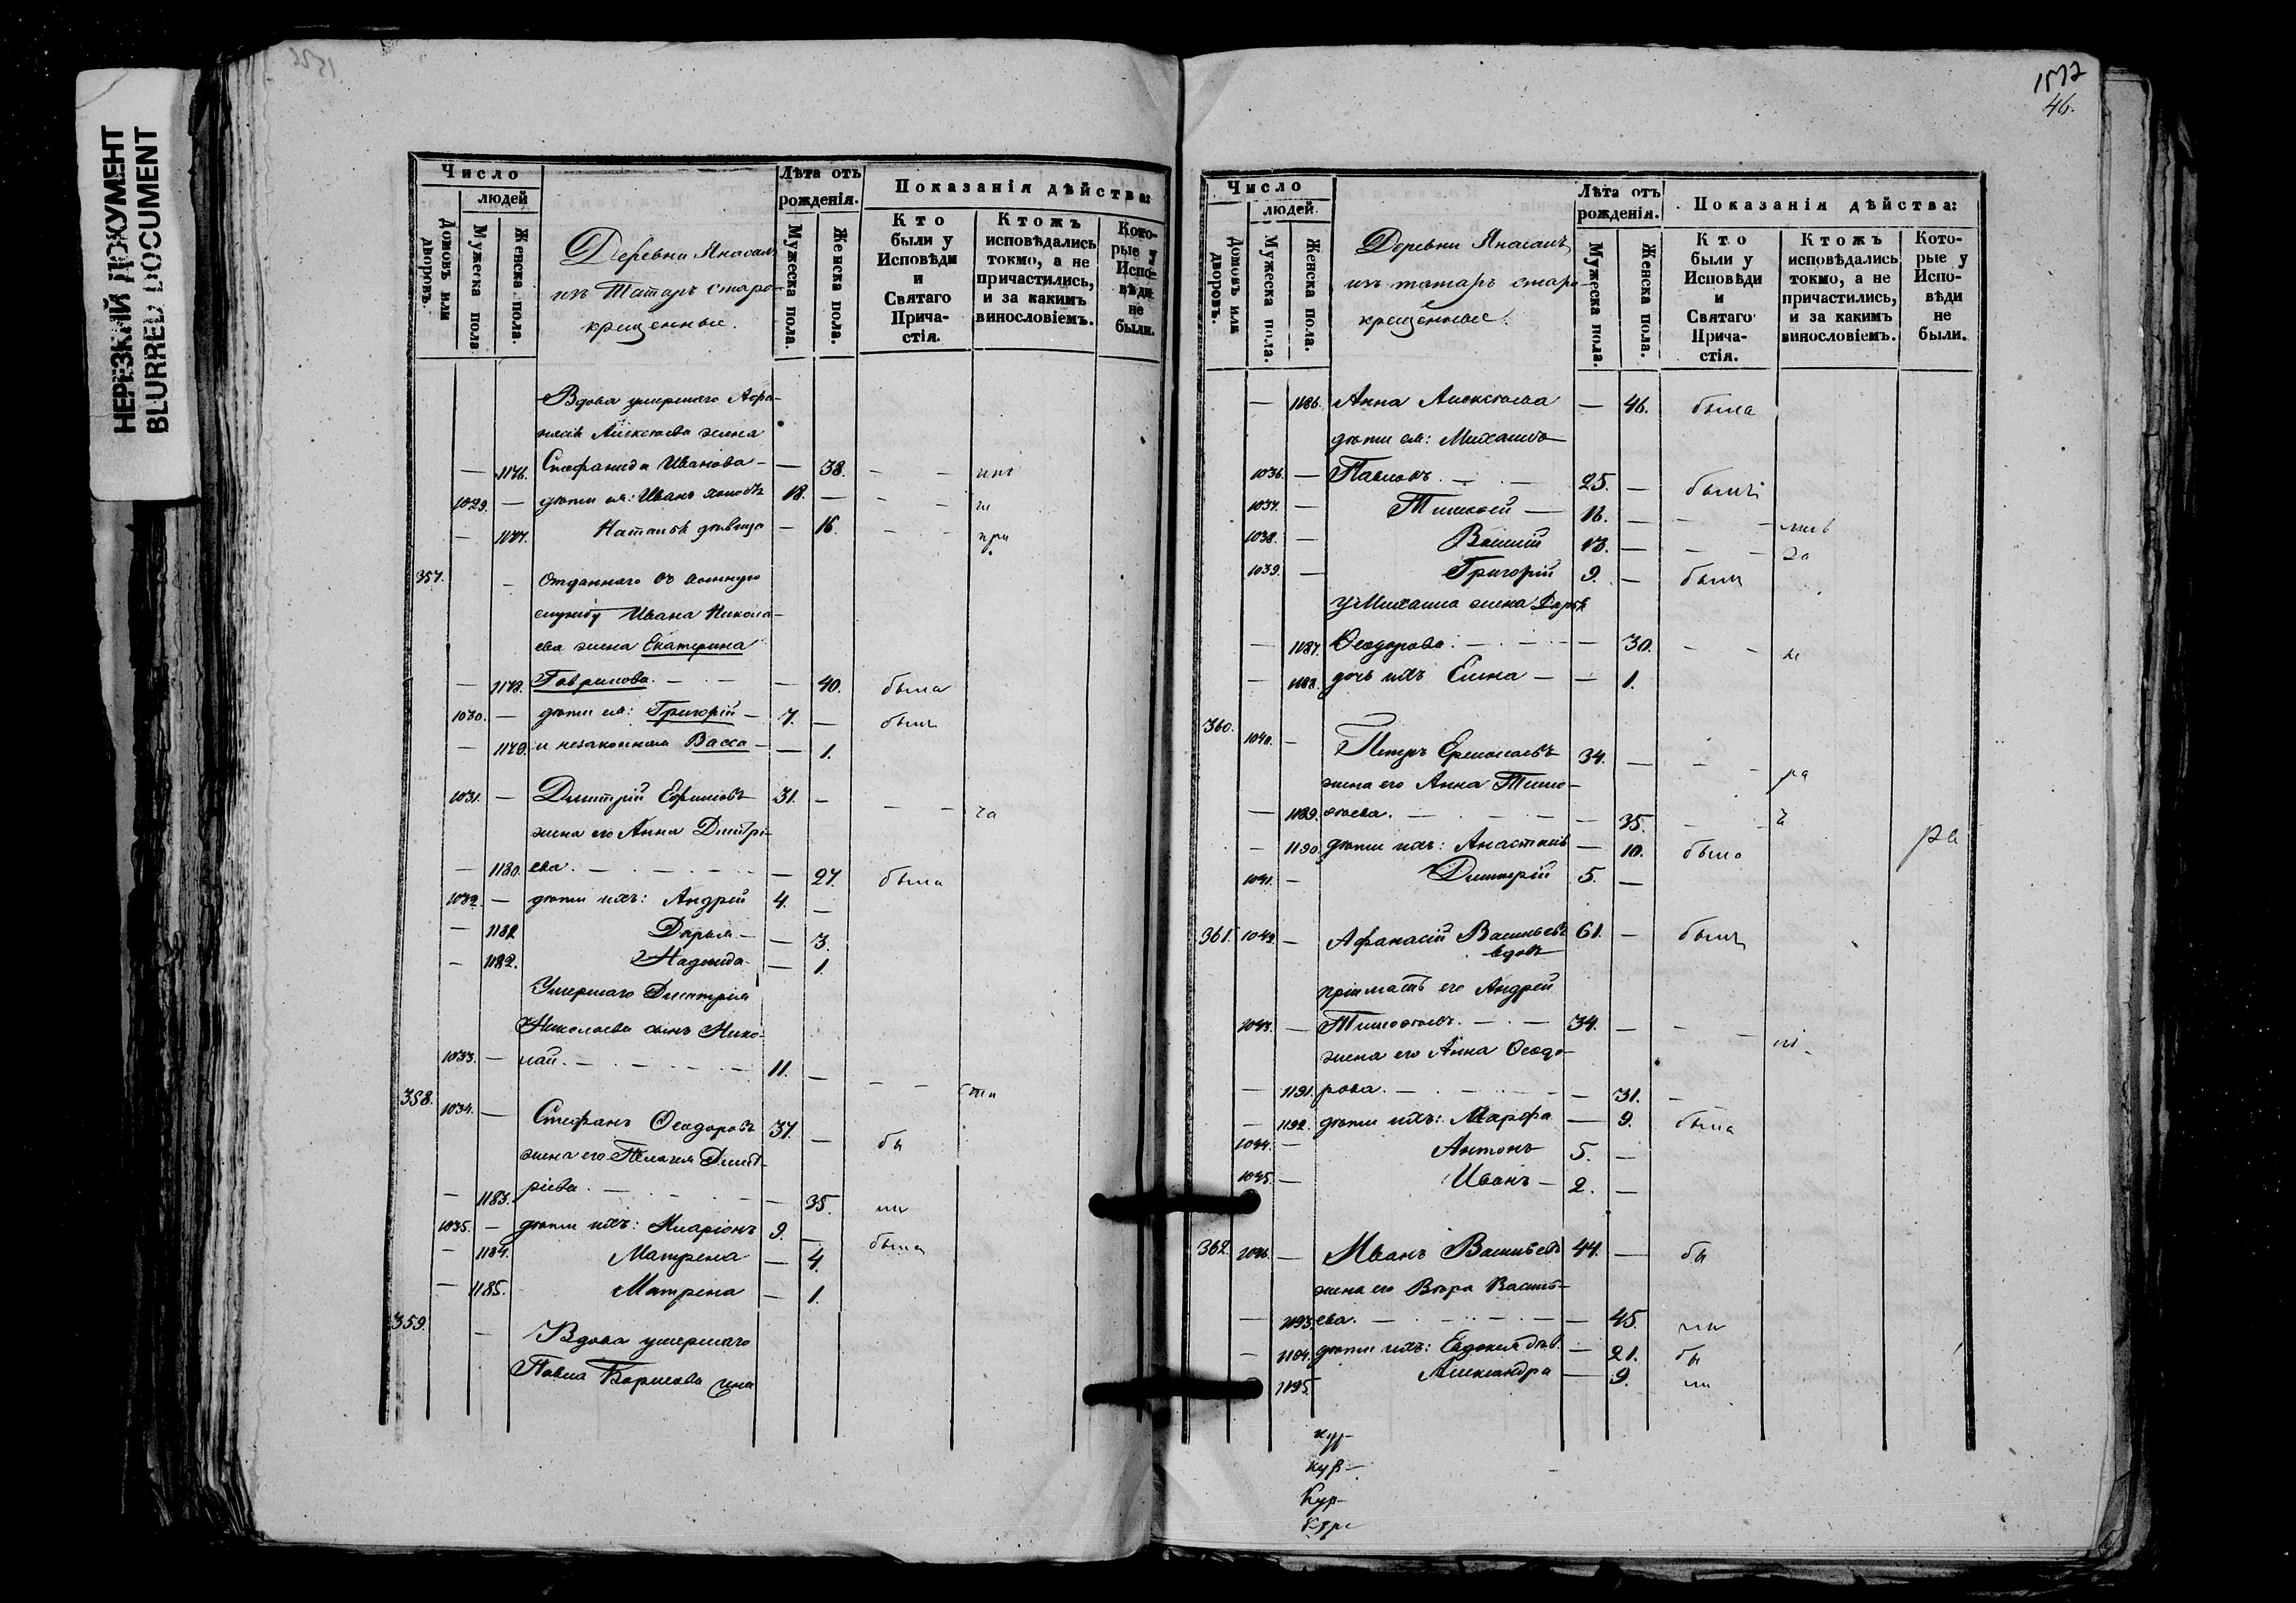 НЕРЕЗКИЙ ДОКУМЕНТ
BLURRED DOCUMENT
Число
людей
Домовъ или дворовъ.
Мужеска пола
Женска пола.
Деревни Янасалъ
изъ Татаръ старо-
крещенные.
Лѣта отъ рожденія.
Мужеска пола.
Женска пола.
Показанія дѣйства:
Кто были у Исповѣди и Святаго Прича-стія.
Ктожъ исповѣдались токмо, а не причастились, и за какимъ винословіемъ.
Кото-рые у Испо-вѣди не были.
Вдова умершаго Афа-
насія Алексѣева жена
— 1176. Стефанида Иванова — — 38. — —
1029. — дѣти ея: Иванъ холостъ 18. — — —
— 1177. Наталія дѣвица — 16. — — при
357. — Отданнаго въ военную
службу Ивана Никола-
ева жена Екатерина
— 1178. Гаврилова. — — — 40. была
1030. — дѣти ея: Григорій — 7. — былъ
— 1179. и незаконная Васса — — 1.
1031. — Димитрій Ефимовъ 31. — — — ча
жена его Анна Димтрі-
— 1180. ева. — — — 27. была
1032. — дѣти ихъ: Андрей 4. —
— 1182 Дарья — — 3.
— 1182. Надежда — — 1.
Умершаго Димитрія
Николаева сынъ Нико-
1033. — лай. — — — 11. — — —
358. 1034. — Стефанъ Ѳеодоровъ 37. — бы
жена его Пелагея Димит-
— 1183. ріева. — — — 35. ли
1035. — дѣти ихъ: Иларіонъ 9. — была
— 1184. Матрена — 4.
— 1185. Матрена — 1.
359. — Вдова умершаго
Павла Борисова жена
1572
46.
Число
людей.
Домовъ или дворовъ.
Мужеска пола.
Женска пола.
Деревни Янасалъ
изъ татаръ старо-
крещенные.
Лѣта отъ рожденія.
Мужеска пола.
Женска пола.
Показанія дѣйства:
Кто были у Исповѣди и Святаго Прича-стія.
Ктожъ исповѣдались токмо, а не причастились, и за какимъ винословіемъ.
Кото-рые у Испо-вѣди не были.
— 1186. Анна Алексѣева — 46. была
дѣти ея: Михаилъ
1036. — Павловъ. — — 25. — былъ
1037. — Тимоѳей — 16. — — —
1038. — Василій 13. — — —
1039. — Григорій 9. — былъ
у Михаила жена Дарья
— 1187. Ѳеодорова. — — — 30. — —
— 1188. дочь ихъ Елена — — 1.
360. 1040. — Петръ Ермолаевъ 34. — — — ра
жена его Анна Тимо-
— 1189. ѳеева. — — — 35. —
— 1190. дѣти ихъ: Анастасія — 10. была
1041. — Димитрій 5. —
361. 1042. — Афанасій Васильевъ 61. — былъ
вдовъ
пріимать его Андрей
1043. — Тимоѳеевъ. — — 34. — — —
жена его Анна Ѳеодо-
— 1191. рова. — — — 31. —
— 1192. дѣти ихъ: Марѳа — 9. была
1044. — Антонъ 5. —
1045. — Иванъ — 2. —
362. 1046. — Иванъ Васильевъ 44. — бы
жена его Вѣра Василь-
— 1193. ева. — — — 45. ли
— 1194. дѣти ихъ: Евдокія дѣв. — 21. бы
1195. Александра — 9. ли
Кур-